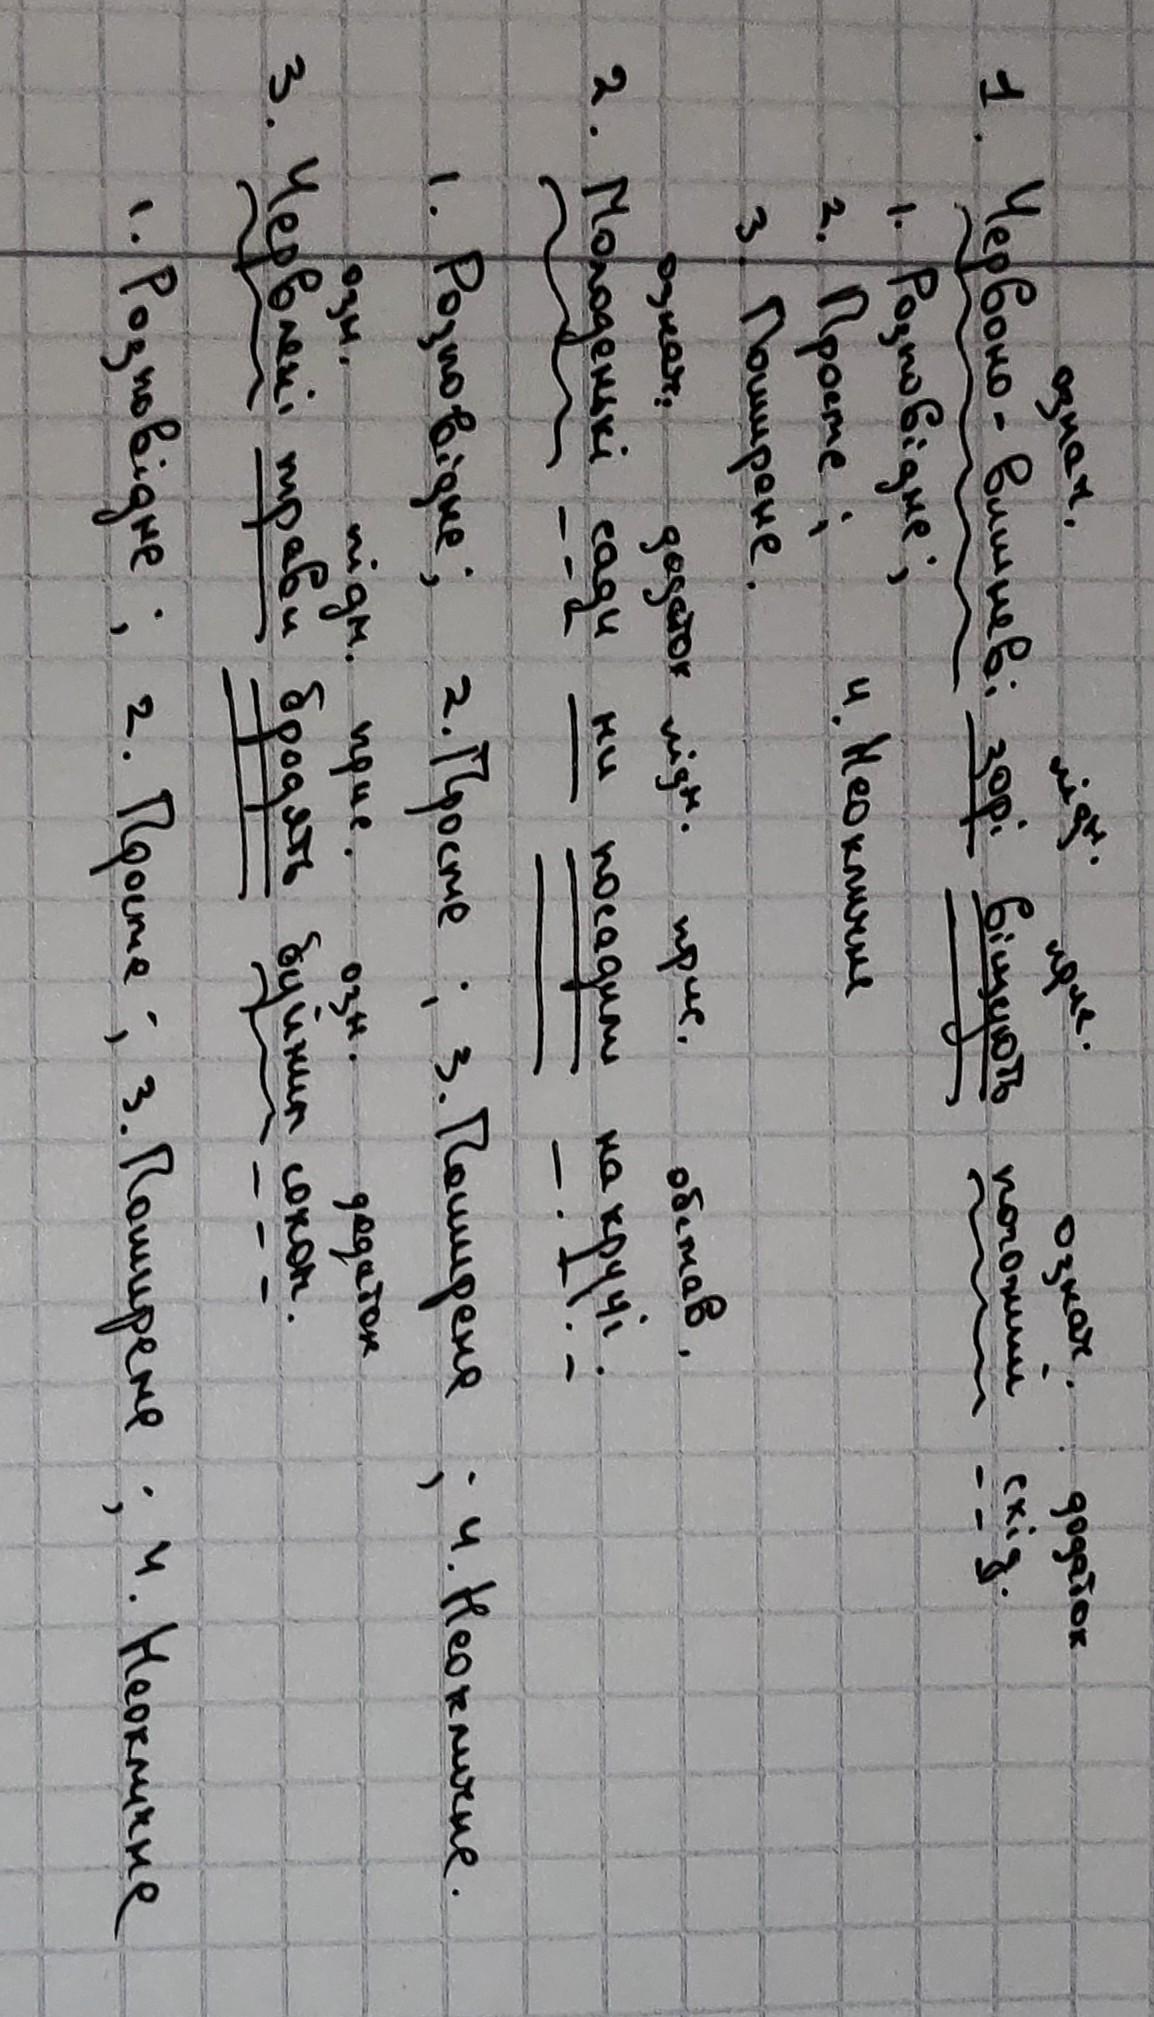 означ. підм. прис. означ. додаток
1. Червоно-вишневі зорі віщують погожий схід.
1. Розповідне;
2. Просте; 4. Неокличне
3. Поширене.
означ. додаток підм. прис. обстав.
2. Молоденькі сади ми посадим на кручі.
1. Розповідне; 2. Просте; 3. Поширене; 4. Неокличне.
озн. підм. прис. озн. додаток
3. Червлені трави бродять буйним соком.
1. Розповідне; 2. Просте; 3. Поширене; 4. Неокличне